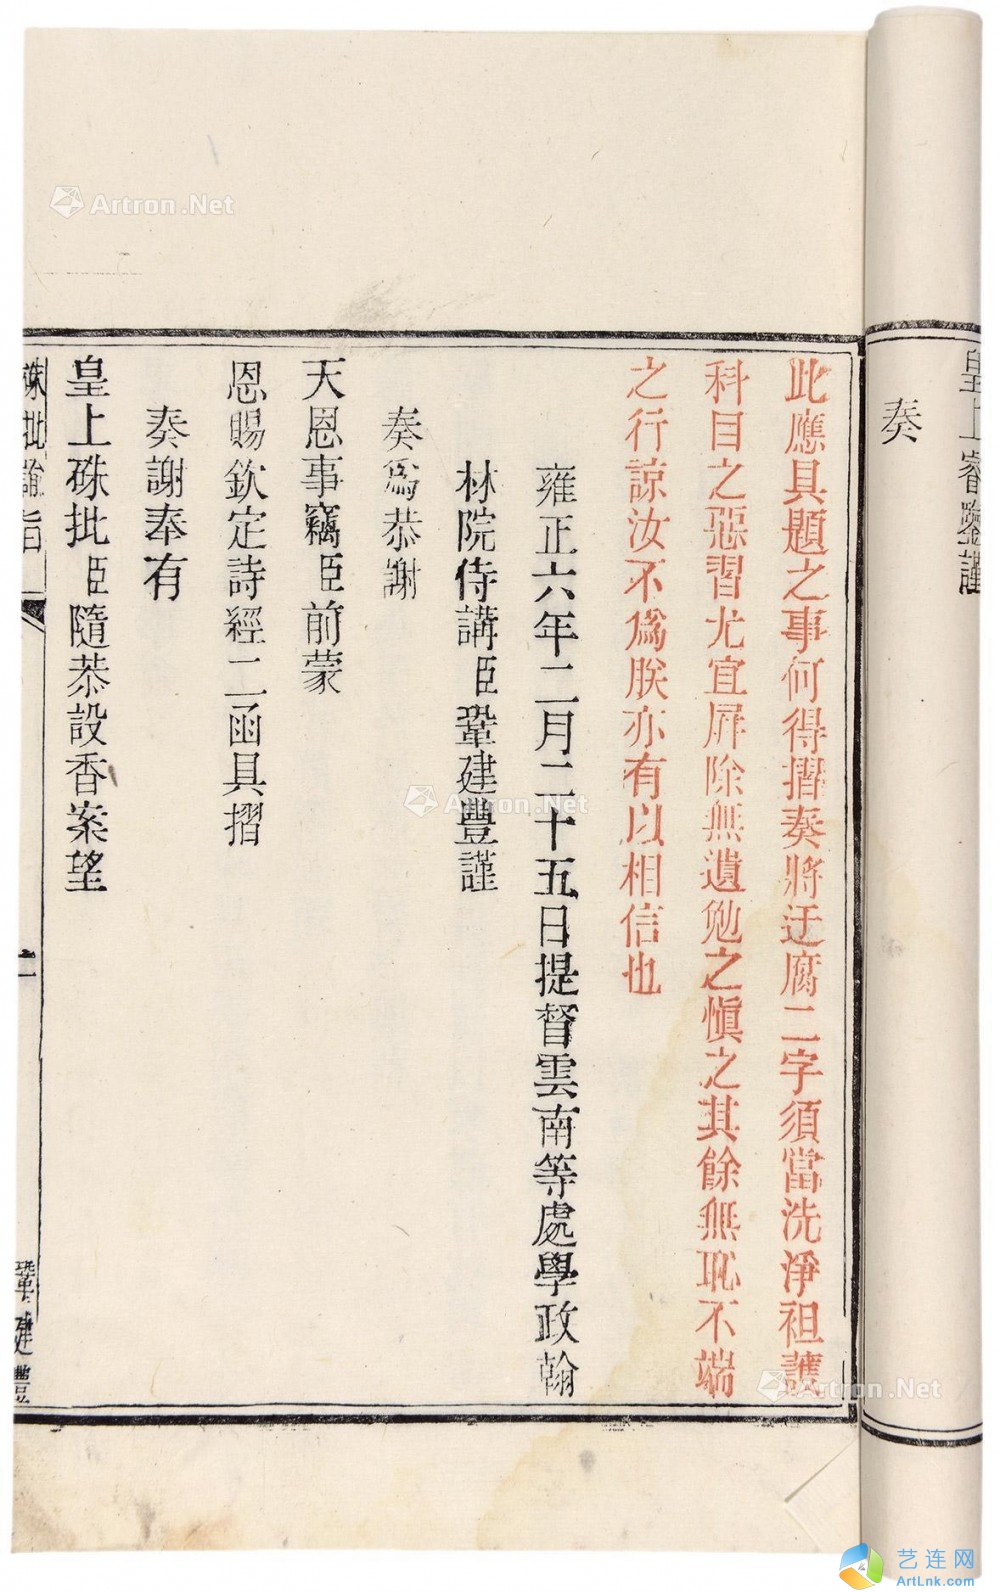 皇上睿鑒謹
奏
此應具題之事何得摺奏將迂腐二字須當洗淨袒護
科目之惡習尤宜屏除無遺勉之慎之其餘無恥不端
之行諒汝不為朕亦有以相信也
雍正六年二月二十五日提督雲南等處學政翰
林院侍講臣鞏建豐謹
奏為恭謝
天恩事竊臣前蒙
恩賜欽定詩經二函具摺
奏謝奉有
皇上硃批臣隨恭設香案望
硃批諭旨
鞏建豐
Artron.Net
Artron.Net
Artron.Net
艺连网
ArtLnk.com